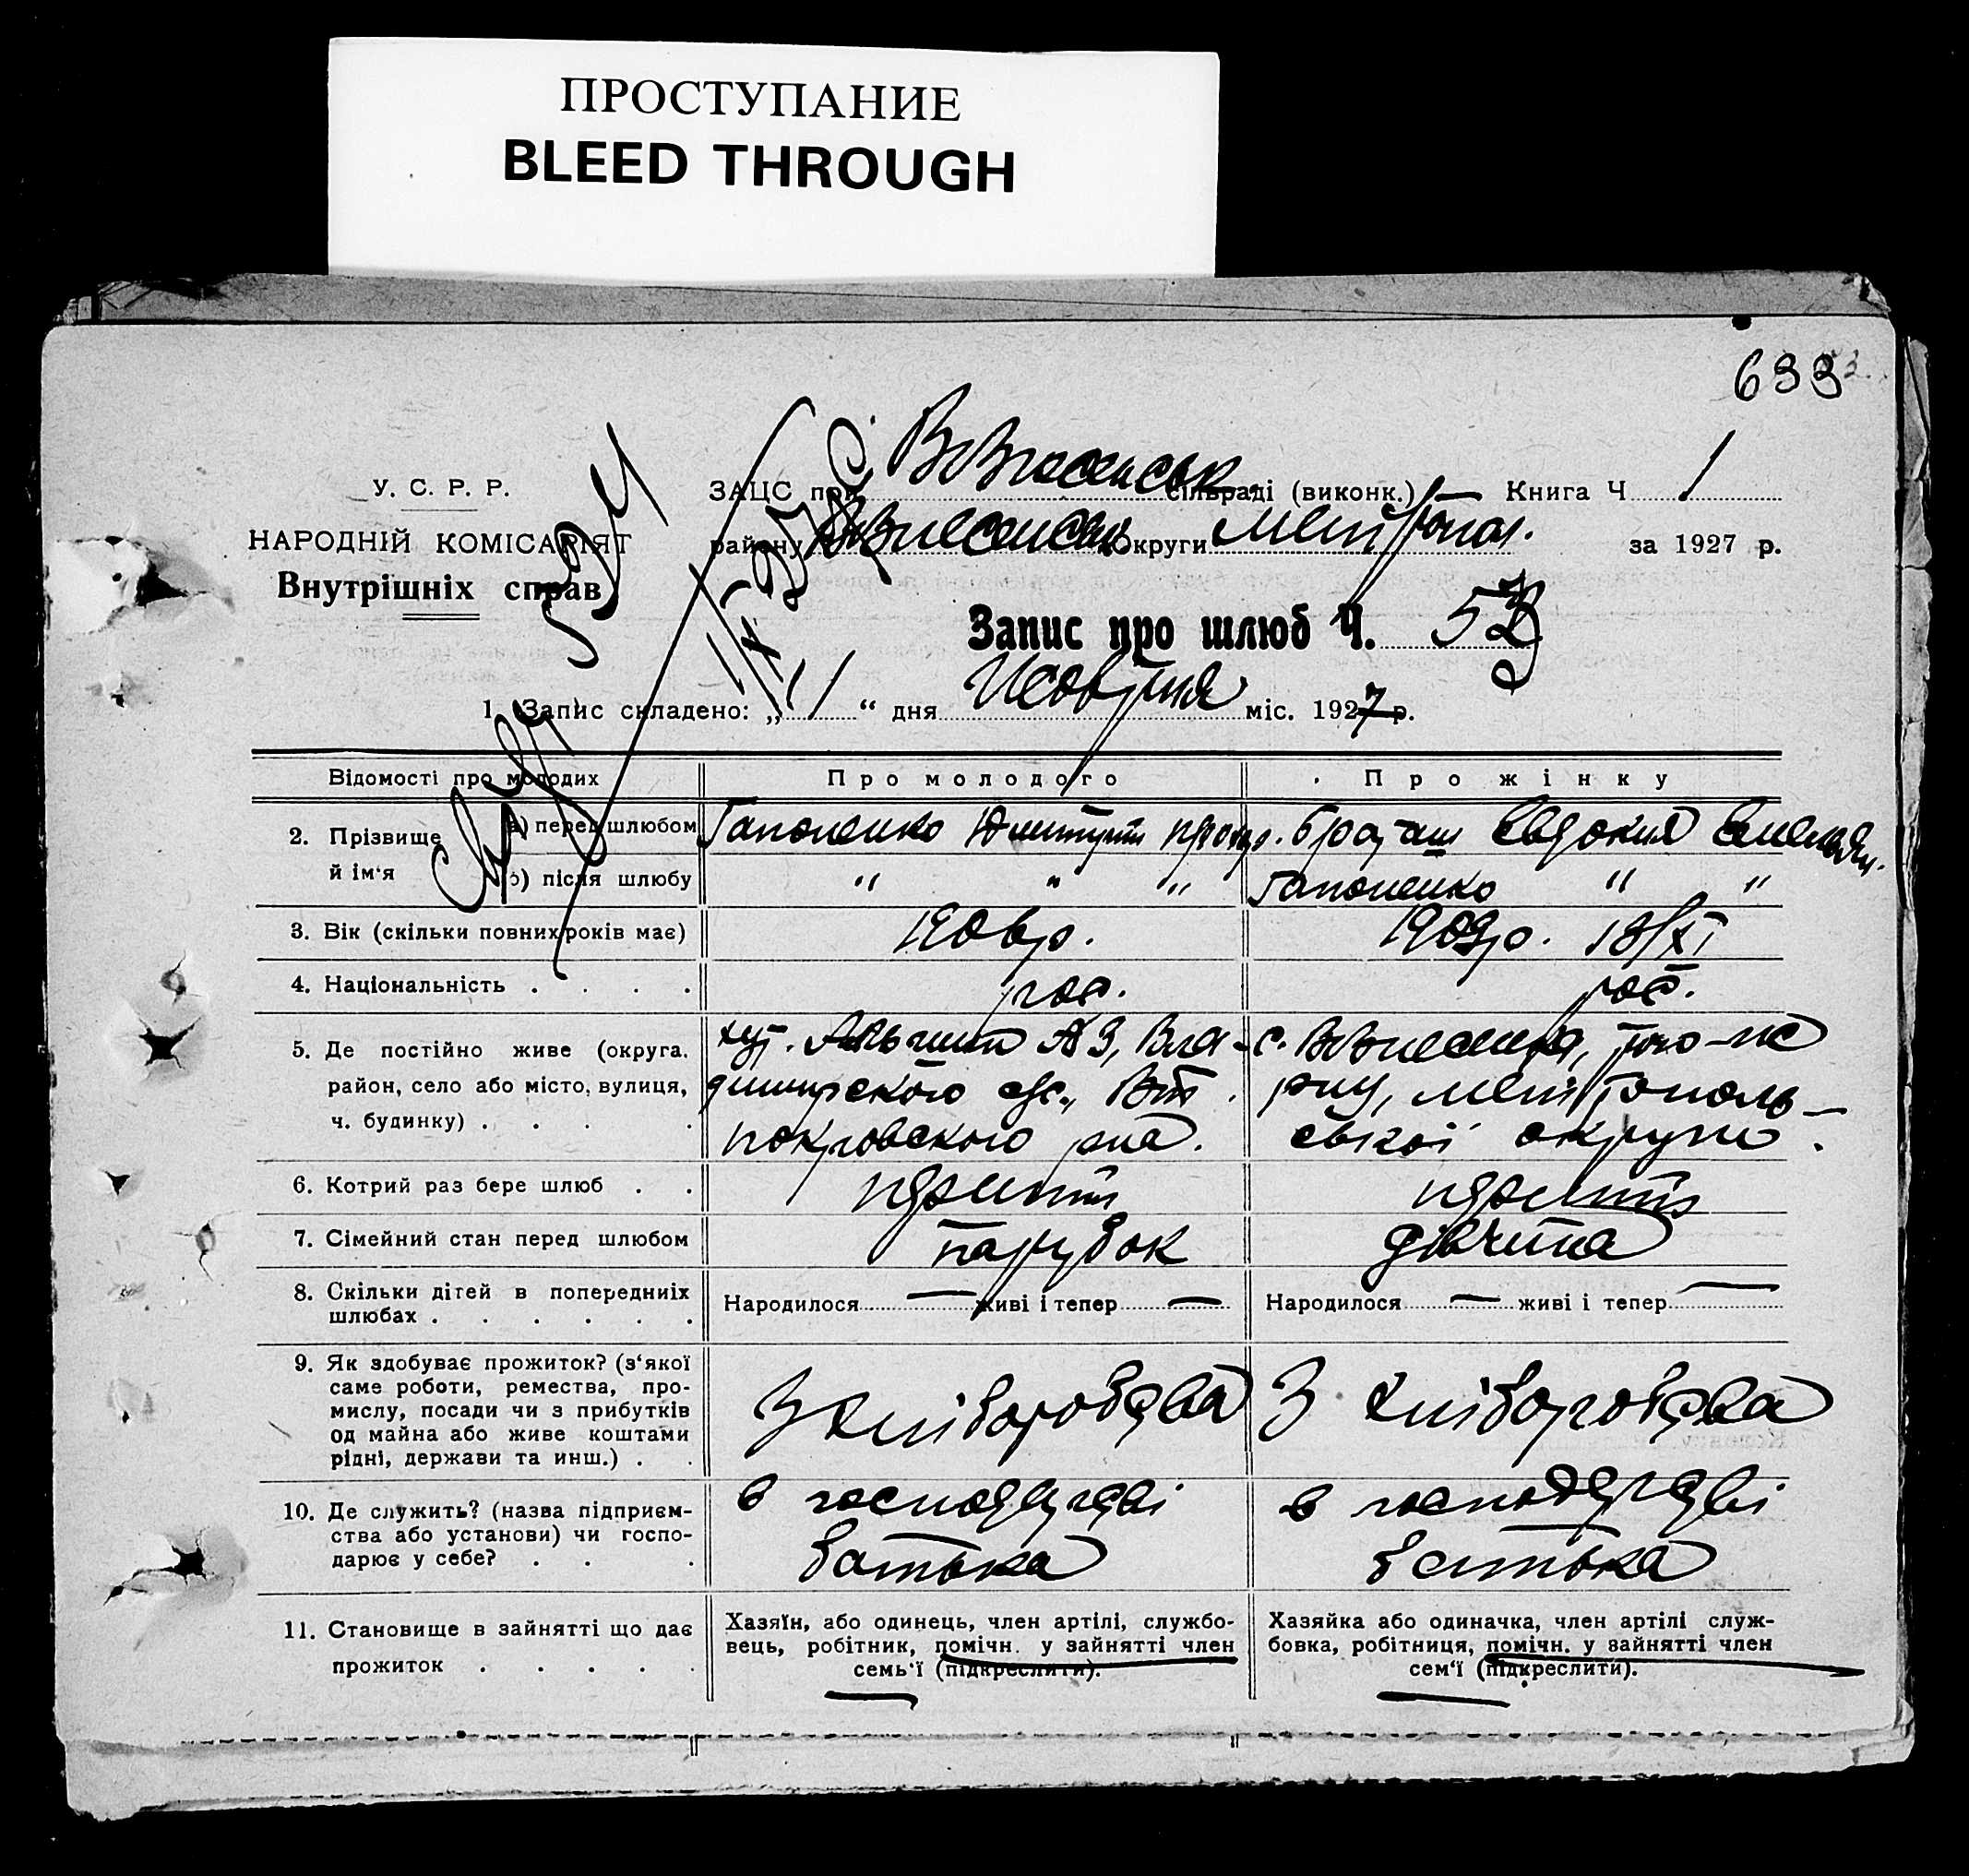 ПРОСТУПАНИЕ
BLEED THROUGH
633
У. С. Р. Р.
НАРОДНІЙ КОМІСАРІЯТ
Внутрішніх справ
ЗАЦС при Вознесенськ. сільраді (виконк.) Книга Ч 1
району Вознесенськ Округи Мелітопол. за 1927 р.
Запис про шлюб Ч. 53
1. Запис складено: „ 1 “ дня Жовтня міс. 1927 р.
Відомості про молодих Про молодого Про жінку
2. Прізвище й ім‘я
а) перед шлюбом Гапоненко Дмитрий Евдокия
б) після шлюбу " " " Гапоненко " "
3. Вік (скільки повних років має) 1906 р. 1909 р. 18/XI
4. Національність . . . . рос. рос.
5. Де постійно живе (округа, район, село або місто, вулиця, ч. будинку) . . . .
хут. № 3, Вла-
димирского с/с.,
покровского р-на.
с. Вознесенка, того-ж
р-ну, Мелітополь-
ської округи.
6. Котрий раз бере шлюб . .
7. Сімейний стан перед шлюбом парубок дівчина
8. Скільки дітей в попередніх шлюбах . . . . . .
Народилося — живі і тепер —
Народилося — живі і тепер —
9. Як здобуває прожиток? (з‘якої
саме роботи, ремества, про-
мислу, посади чи з прибутків
од майна або живе коштами
рідні, держави та инш.) . .
З хліборобства
З хліборобства
10. Де служить? (назва підприєм-
ства або установи) чи госпо-
дарює у себе? . . .
в господарстві
батька
в господарстві
батька
11. Становище в зайнятті що дає
прожиток . . . . .
Хазяїн, або одинець, член артілі, службо-
вець, робітник, помічн. у зайнятті член
семь‘ї (підкреслити).
Хазяйка або одиначка, член артілі служ-
бовка, робітниця, помічн. у зайнятті член
сем‘ї (підкреслити).